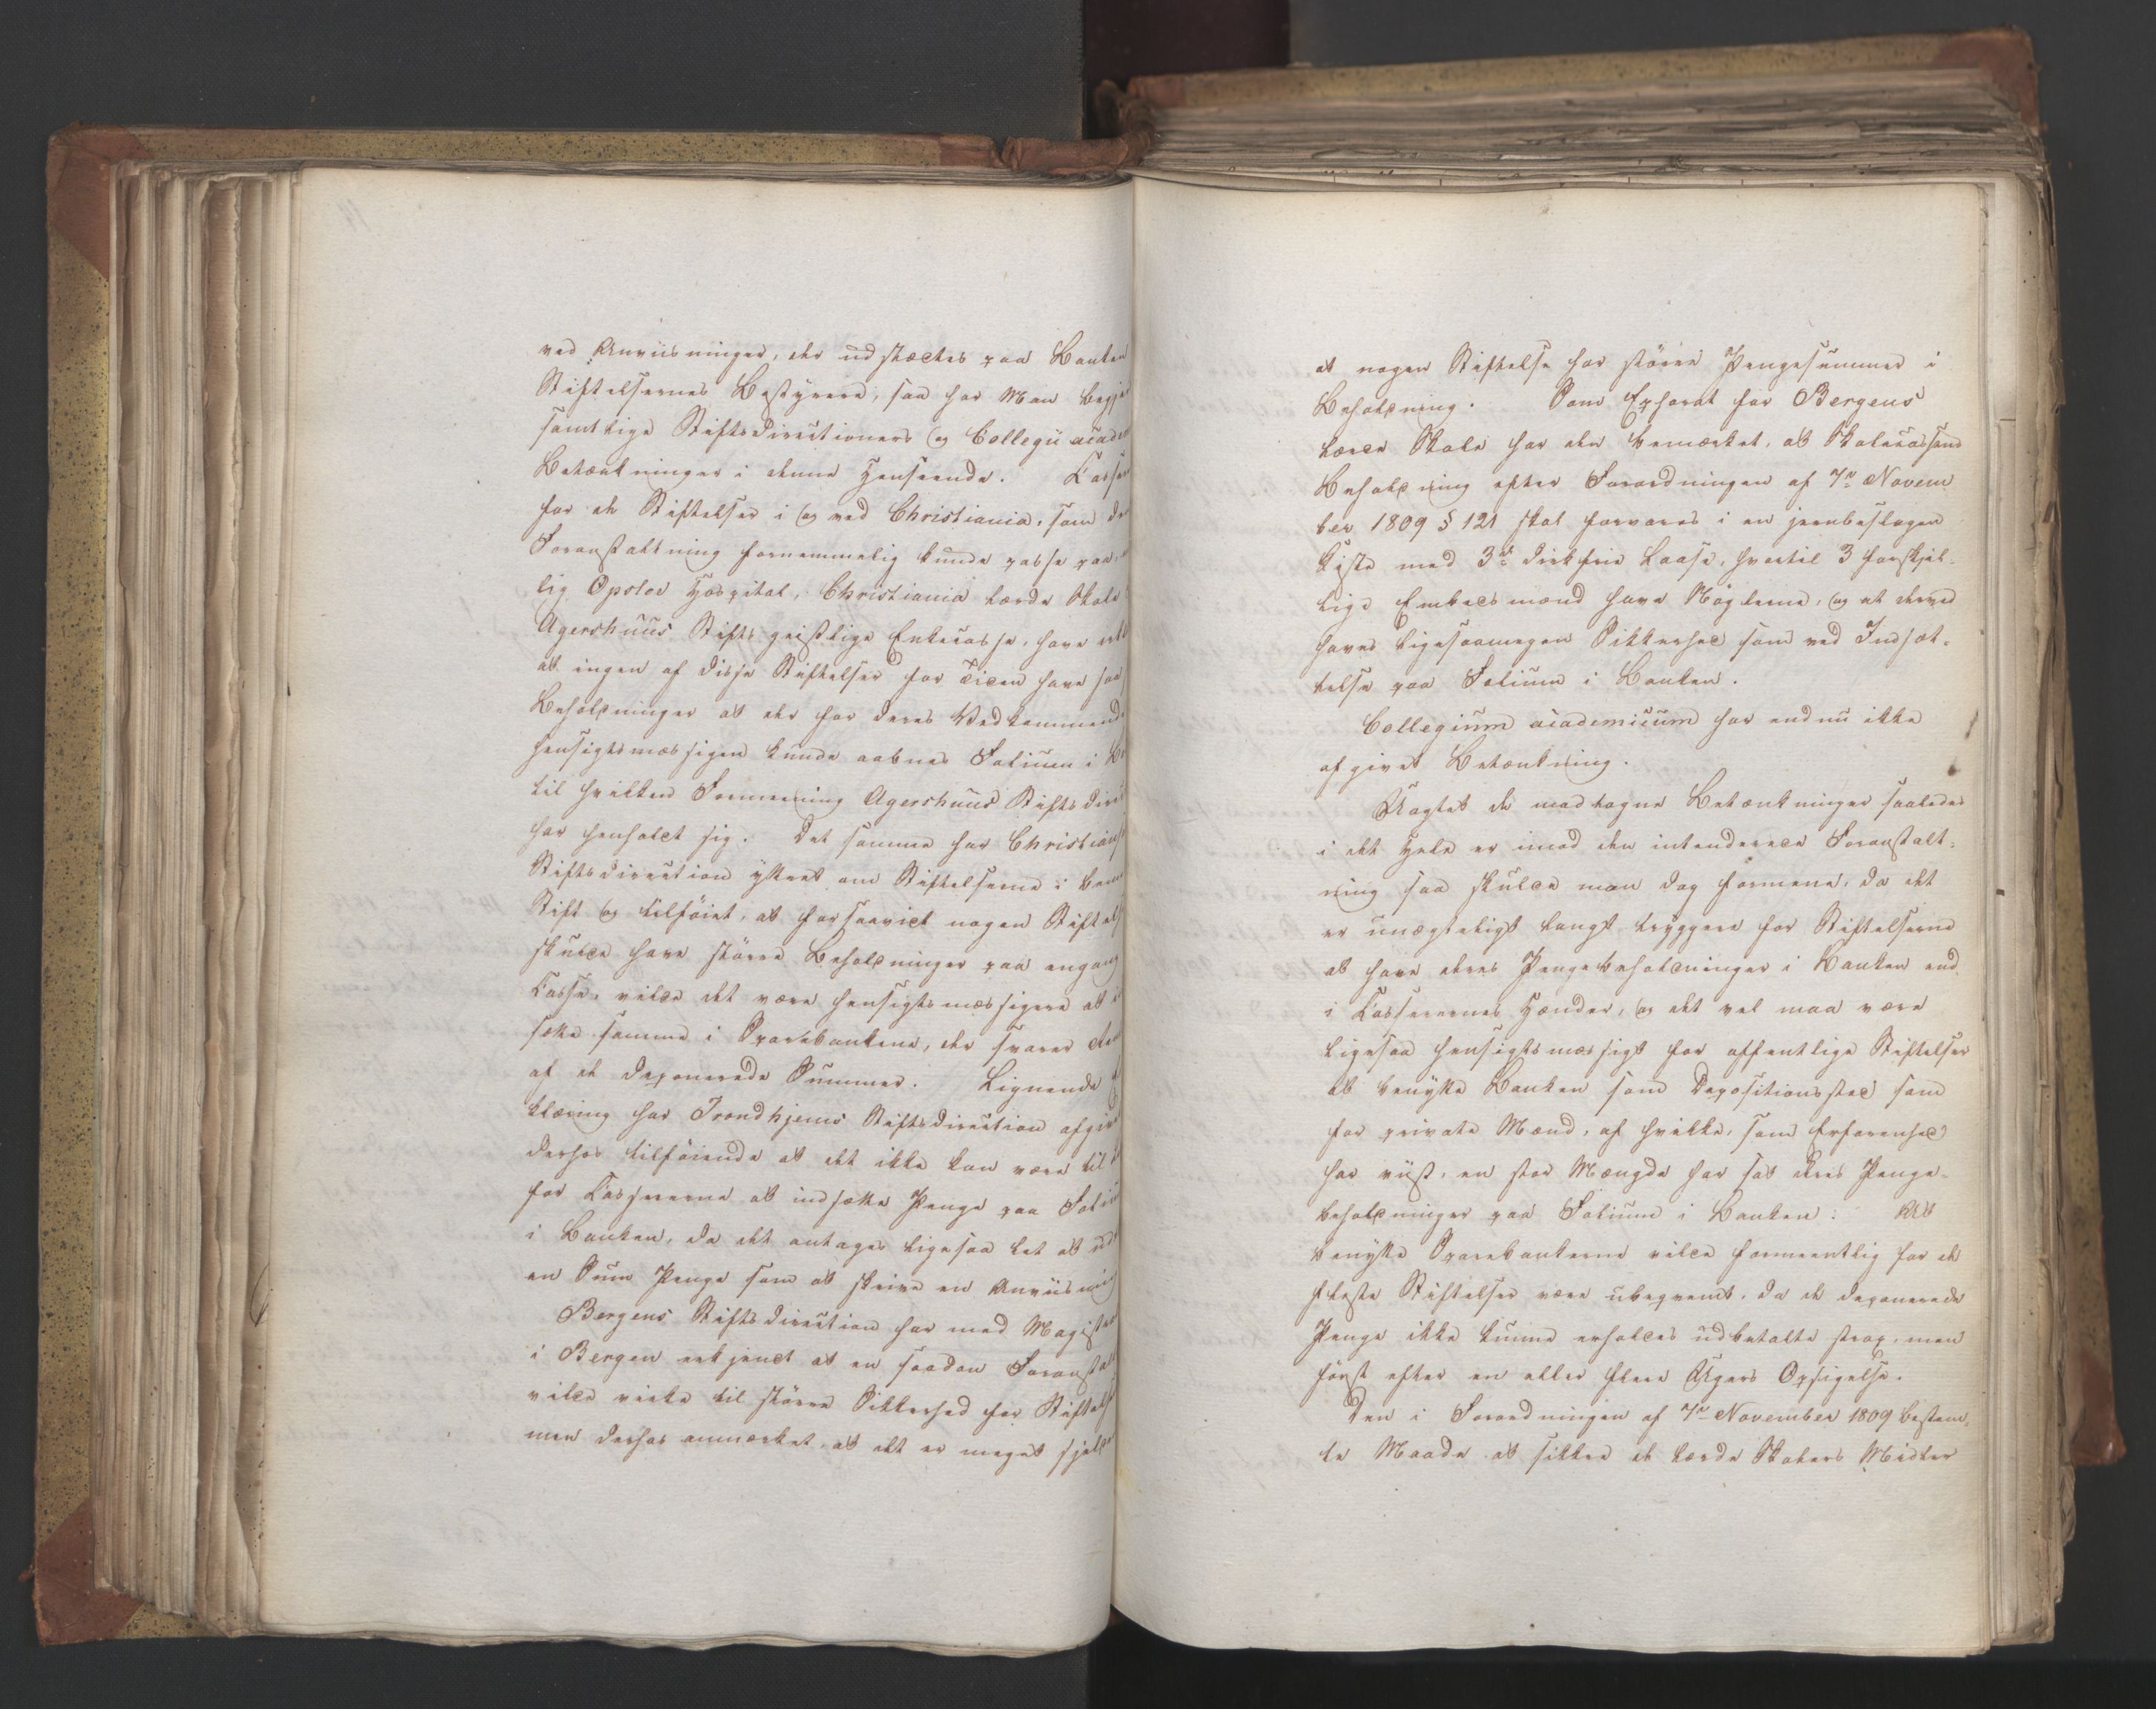 ved Anviisninger, der udstædes paa Banken
Stiftelsernes Bestyrere, saa har Man begje
samtlige Stiftsdirectioners og Collegii acade
Betænkninger i denne Henseende. Casse
for de Stiftelser i og ved Christiania, som de
Foranstaltning fornemmelig kunde passe paa,
lig Opslo Hospital, Christiania lærde Skole
Agershuus Stifts geistlige Enkecasse, have
at ingen af disse Stiftelser for Tiden have saa
Beholdninger at der for deres Vedkommende
hensigtsmæssigen kunde aabnes Folium i B
til hvilken Formening Agershuus Stiftsdirec
har henholdt sig. Det samme har Christians
Stiftsdirection yttret om Stiftelserne i
Stift og tilføiet, at forsaavidt nogen Stiftel
skulde have større Beholdninger paa engang
Casse, vilde det være hensigtsmæssigere at
sætte samme i Sparebankene, der svarer
af de deponerede Summer. Lignende
klæring har Trondhjems Stiftsdirection afgiv
derhos tilføiende at det ikke kan være til
for Cassererne at indsætte Penge paa Foliu
i Banken, da det antages ligesaa let at
en Sum Penge som at skrive en Anviisning
Bergens Stiftsdirection har med Magist
i Bergen erkjendt at en saadan Foransta
vilde virke til større Sikkerhed for Stiftels
men derhos anmærket, at det er meget sjeld
at nogen Stiftelse har større Pengesummer i
Beholdning. Som Ephorat for Bergens
lærde Skole har den bemærket, at Skolecassens
Beholdning efter Forordningen af 7de Novem
ber 1809 § 121 skal forvares i en jernbeslagen
Kiste med 3de dirkfrie Laase, hvortil 3 forskjel-
lige Embedsmænd have Nøglerne, og at derved
haves ligesaamegen Sikkerhed som ved Indsæt-
telse paa Folium i Banken.
Collegium academicum har endnu ikke
afgivet Betænkning.
Uagtet de modtagne Betænkninger saaledes
i det Hele er imod den intenderede Foranstalt-
ning saa skulde man dog formene, da det
er unægteligt langt tryggere for Stiftelserne
at have deres Pengebeholdninger i Banken end
i Casserernes Hænder, og det vel maa være
ligesaa hensigtsmæssigt for offentlige Stiftelser
at benytte Banken som Depositionssted som
for private Mænd, af hvilke, som Erfarenhed
har viist, en stor Mængde har sat deres Penge-
beholdninger paa Folium i Banken: At
benytte Sparebankerne vilde formeentlig for de
fleste Stiftelser være ubeqvemt, da de deponerede
Penge ikke kunne erholdes udbetalte strax, men
først efter en eller flere Ugers Opsigelse.
Den i Forordningen af 7de November 1809 bestem-
te Maade at sikkre de lærde Skolers Midler